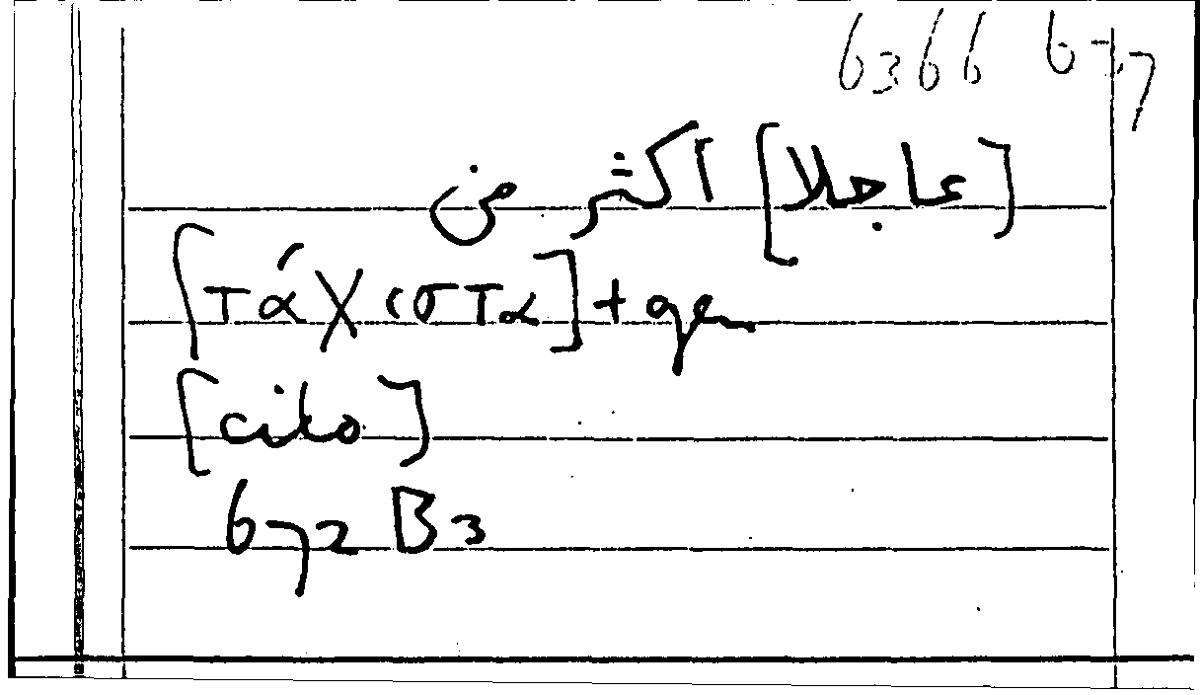 6366 6-7
[عاجلا] اكثر من
[τάχιστα] + gen
[cito]
672 B3